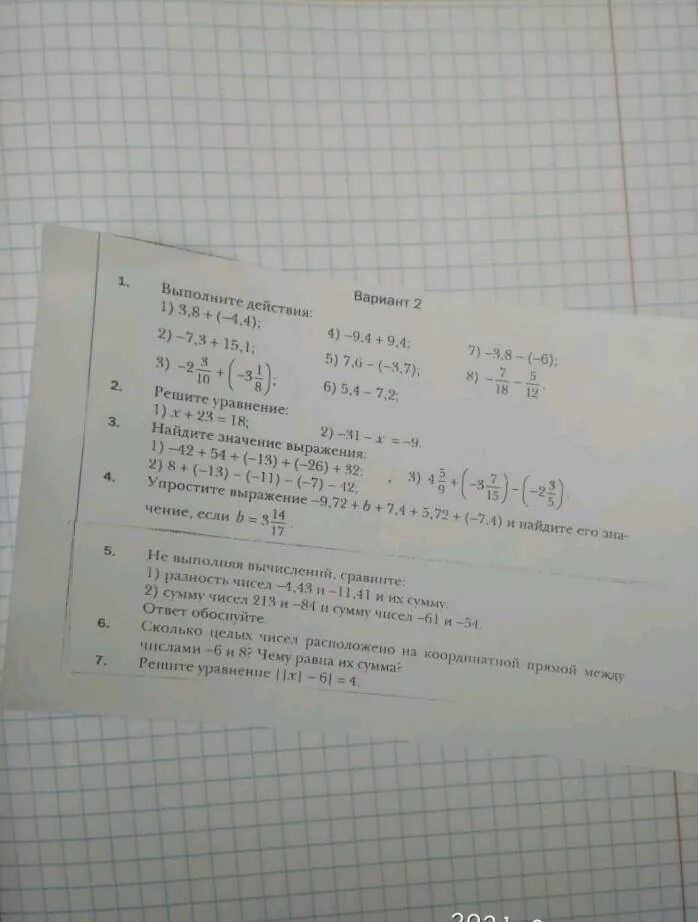 Вариант 2
1. Выполните действия:
1) 3,8 + (−4,4); 4) −9,4 + 9,4; 7) −3,8 − (−6);
2) −7,3 + 15,1; 5) 7,6 − (−3,7); 8) −7/18 − 5/12.
3) −2 3/10 + (−3 1/8); 6) 5,4 − 7,2;
2. Решите уравнение:
1) x + 23 = 18; 2) −31 − x = −9.
3. Найдите значение выражения:
1) −42 + 54 + (−13) + (−26) + 32; 3) 4 5/9 + (−3 7/15) − (−2 3/5).
2) 8 + (−13) − (−11) − (−7) − 42;
4. Упростите выражение −9,72 + b + 7,4 + 5,72 + (−7,4) и найдите его зна-
чение, если b = 3 14/17.
5. Не выполняя вычислений, сравните:
1) разность чисел −4,43 и −11,41 и их сумму;
2) сумму чисел 213 и −84 и сумму чисел −61 и −54.
Ответ обоснуйте.
6. Сколько целых чисел расположено на координатной прямой между
числами −6 и 8? Чему равна их сумма?
7. Решите уравнение ||x| − 6| = 4.